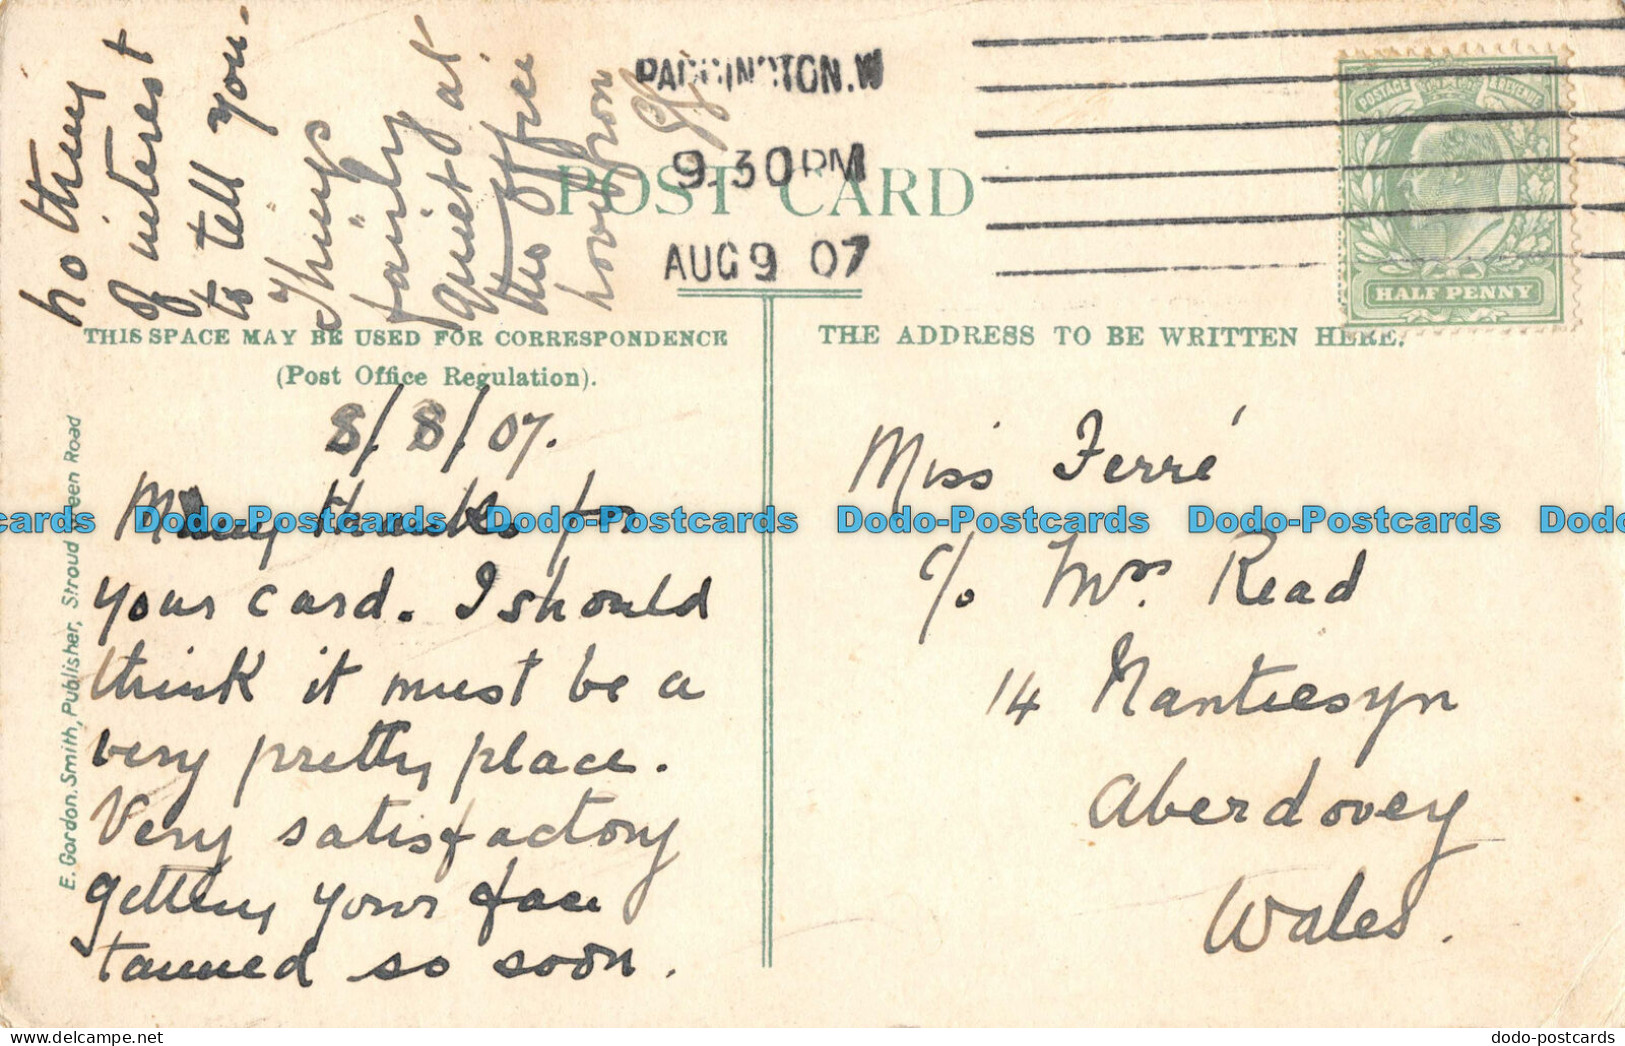 PADDINGTON.W
9.30PM
AUG 9 07
POSTAGE & REVENUE
HALF PENNY
POST CARD
THIS SPACE MAY BE USED FOR CORRESPONDENCE
(Post Office Regulation).
THE ADDRESS TO BE WRITTEN HERE.
E. Gordon Smith, Publisher, Stroud Green Road
8/8/07.
Many thanks for
your card. I should
think it must be a
very pretty place.
Very satisfactory
getting your face
tanned so soon.
nothing
of interest
to tell you.
Things
fairly
quiet at
the office
now from
Miss Ferré
c/o Mrs. Read
14 Nantiesyn
Aberdovey
Wales.
Dodo-Postcards Dodo-Postcards Dodo-Postcards Dodo-Postcards
dodo-postcards